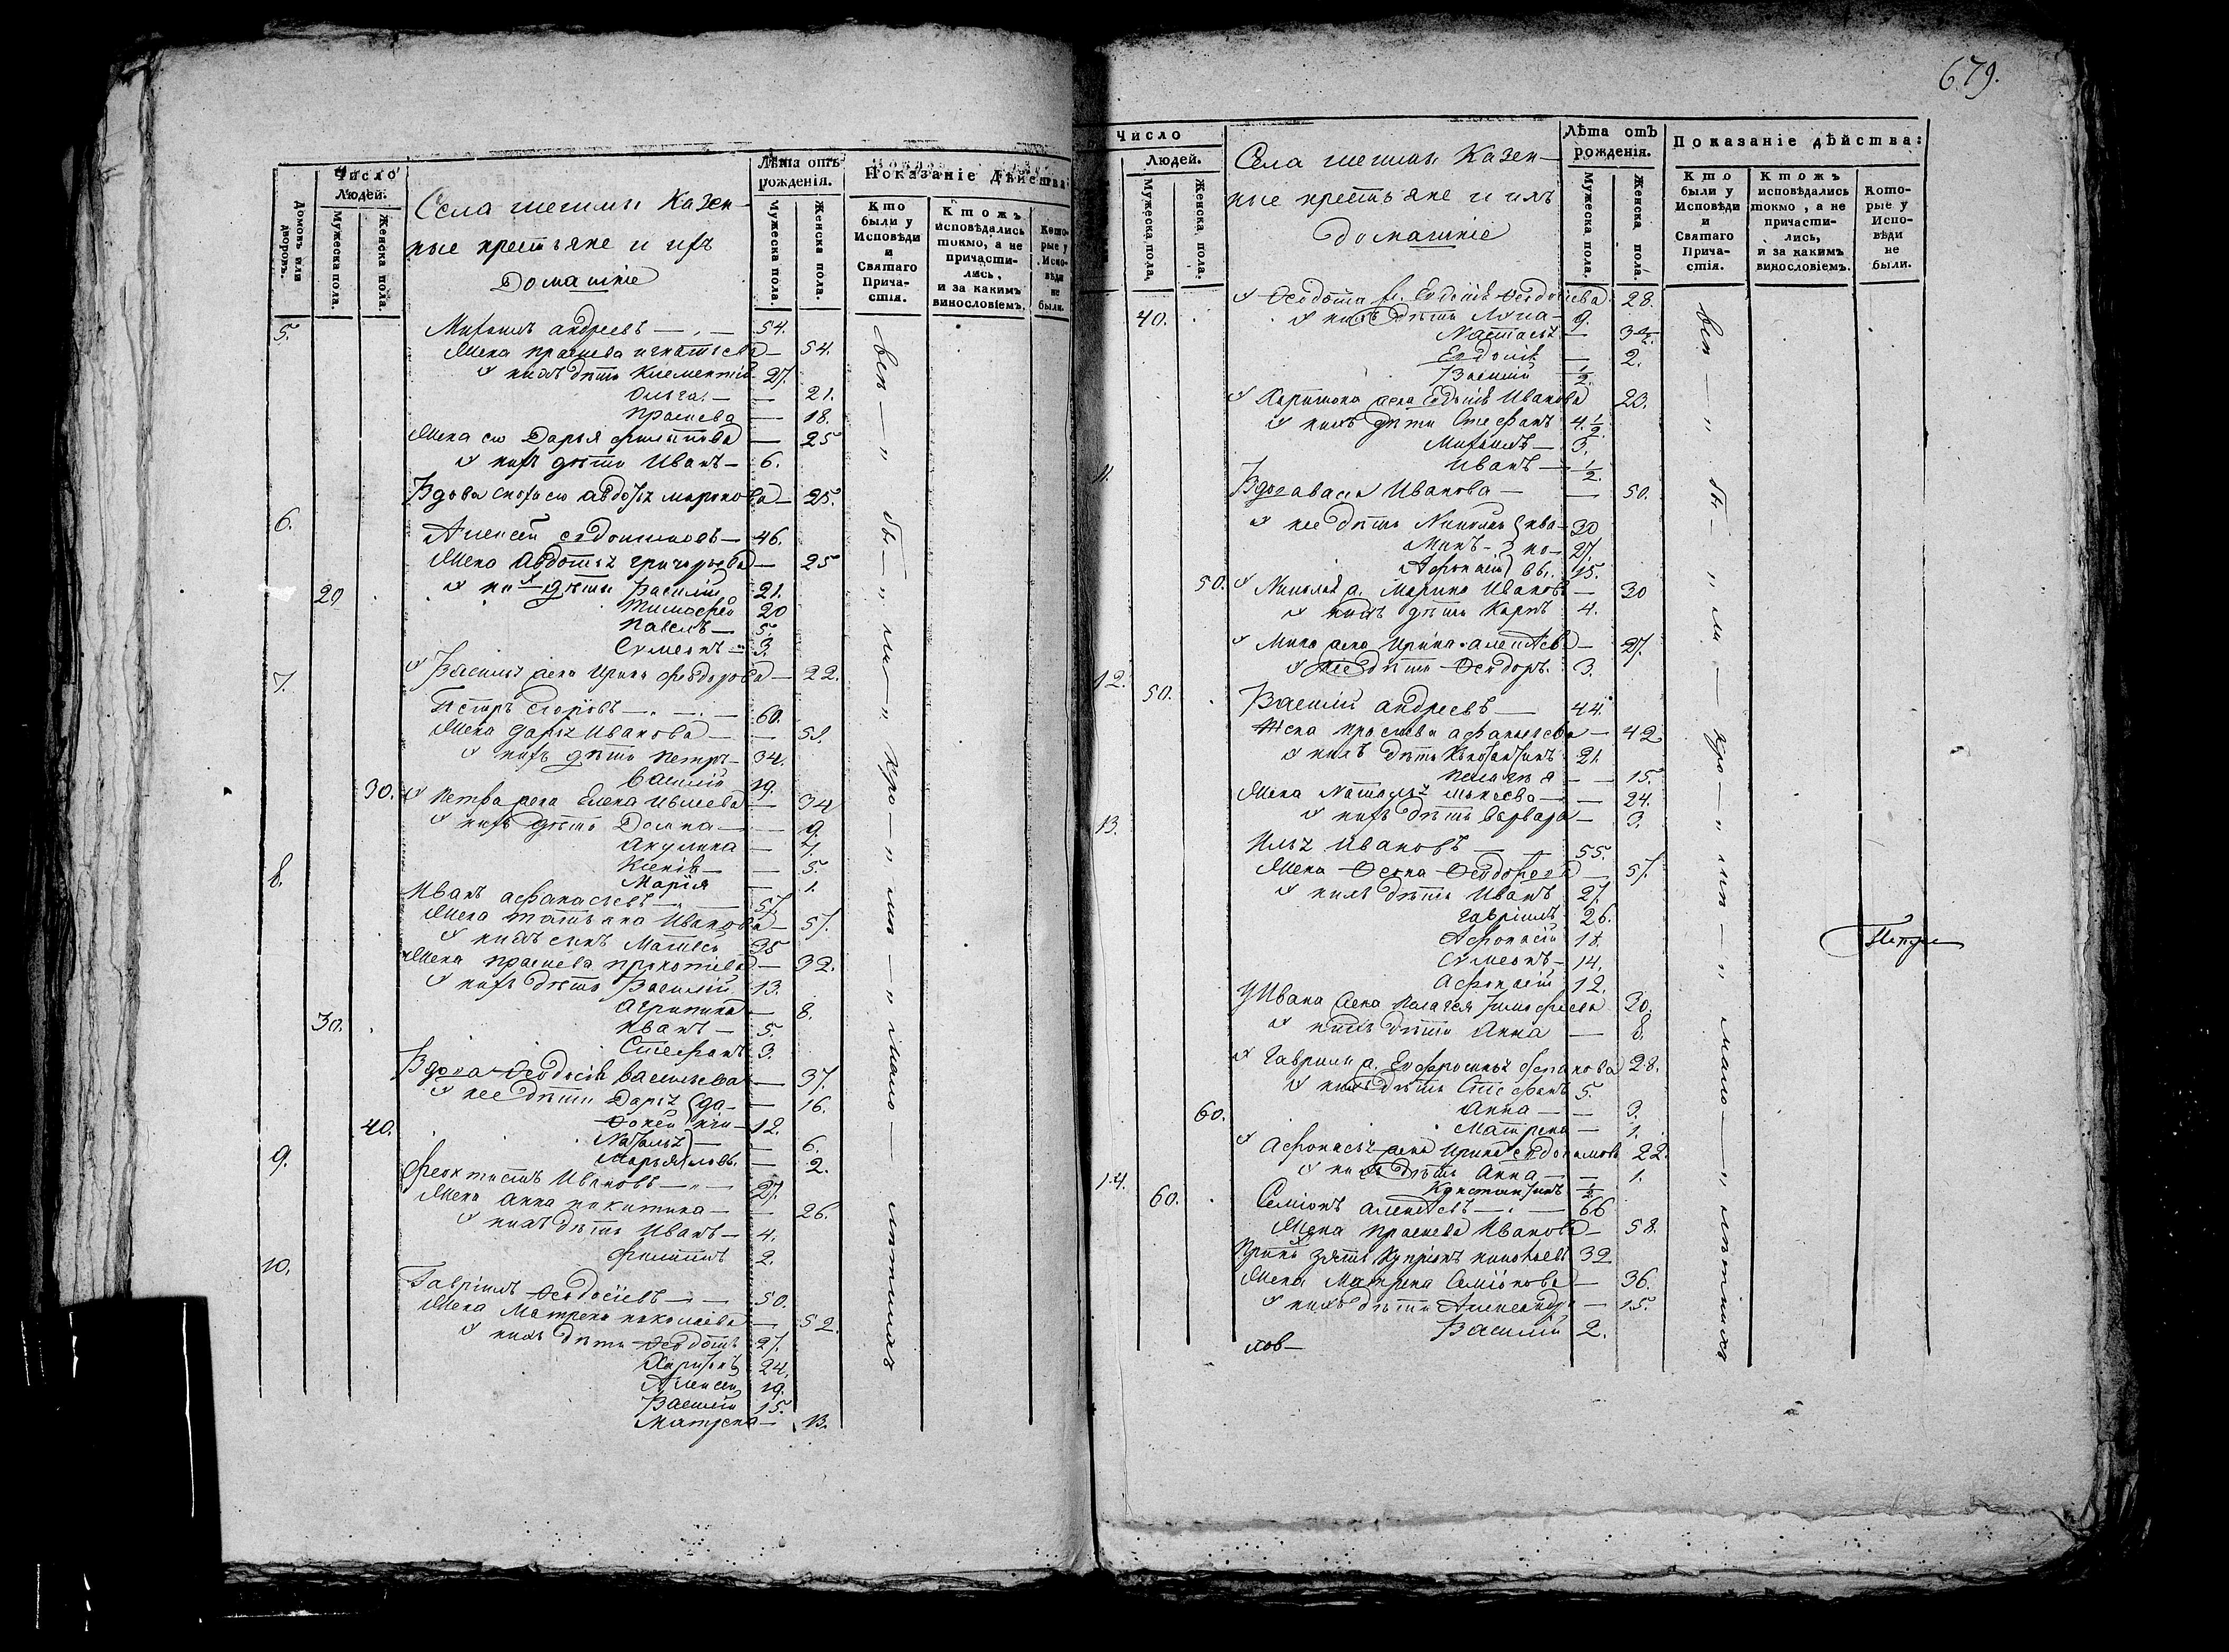 679.
Число
Людей.
Домовъ или дворовъ.
Мужеска пола.
Женска пола.
Села Казен-
ные крестьяне и ихъ
Домашніе
Лѣта отъ рожденія.
Мужеска пола.
Женска пола.
Показаніе дѣйства
Кто были у Исповѣди и Святаго Причастія.
Ктожъ исповѣдались токмо, а не причастились, и за какимъ винословіемъ.
Которые у Исповѣди не были.
5. Михаилъ андреевъ — 54.
Жена праскева игнатьева — 54.
У нихъ дѣти Климентій 27.
Ольга — 21.
праскева — 18.
Жена его Дарья филипова — 25
У нихъ дѣти Иванъ — 6.
Вдова авдотья — 25.
6. Алексѣй евдокимовъ — 46.
Жена Авдотья григорьева — 25
20. У нихъ дѣти Василій 21.
Тимофей 20
Павелъ — 5.
Сѵмеонъ — 3.
У Василья жена Ирина феодорова — 22.
7. Петръ — 60.
Жена дарья Иванова — 51.
У нихъ дѣти петръ — 34.
василій 19.
30. У петра жена Елена — 34
У нихъ дѣти Домна — 9.
Акулина — 7.
Ксенія — 5.
Марія — 1.
8. Иванъ афанасьевъ — 57
Жена татьяна Иванова — 57.
У нихъ сынъ Матвей 35
Жена праскева прокопіева — 32.
У нихъ дѣти Василій 13.
Агрипина — 8.
30. Иванъ — 5.
Стефанъ 3.
Вдова Ѳеодосія васильева — 37.
У нее дѣти Дарья — 16.
40. Ѳокей — 12.
Наталья — 6.
Марья — 2.
9. Феоктистъ Ивановъ — 27.
Жена анна никитина — 26.
У нихъ дѣти Иванъ — 4.
филиппъ 2.
10. Гавріилъ Ѳеодосіевъ — 50.
Жена Матрена николаева — 52.
У нихъ дѣти Ѳеодотъ 27.
Харитонъ 24.
Алексей 19.
Василій 15.
Матрена — 13.
всѣ — " бы — " ли — " про — " шло — " мало — лѣтныхъ
Число
Людей.
Мужеска пола.
Женска пола.
Села Казен-
ные крестьяне и ихъ
домашніе
Лѣта отъ рожденія.
Мужеска пола.
Женска пола.
Показаніе дѣйства:
Кто были у Исповѣди и Святаго Причастія.
Ктожъ исповѣдались токмо, а не причастились, и за какимъ винословіемъ.
Которые у Исповѣди не были.
У Ѳеодота ж. Евдокія 28.
40. У нихъ дѣти Анна — 9.
Наталья — 3½.
Евдокія — 2.
Василій ½.
У Харитона жена Евдокія Иванова 23.
У нихъ дѣти Стефанъ 4.½
Михаилъ — 3.
Иванъ — ½.
11. Вдова Иванова — 50.
У нее дѣти Николай 30
27.
Афонасій 15.
50. У Николая ж. Марина Иванова — 30
У нихъ дѣти Карпъ 4.
У жена Ирина алексѣева — 27.
У нее дѣти Ѳеодоръ. 3.
12. 50. Василій андреевъ — 44.
Жена праскева афанасьева — 42
У нихъ дѣти Константинъ 21.
Пелагея — 15.
Жена Наталья — 24.
У нихъ дѣти варвара — 3.
13. Илья Ивановъ — 55.
Жена Ѳекла Ѳеодорова — 57.
У нихъ дѣти Иванъ 27.
Гавріилъ 26.
Афонасій 18.
Сѵмеонъ — 14.
Афонасій 12.
У Ивана жена пелагея тимофеева 30.
У нихъ дѣти Анна — 8.
У Гавріила ж. Евфросинья 28.
У нихъ дѣти Стефанъ 5.
60. Анна — 3.
Матрена — 1.
У Афонасья жена Ирина евдокимова 22.
У нихъ дѣти Анна — 1.
Константинъ ½
14. 60. Семіонъ алексѣевъ — 66
Жена праскева Иванова — 58.
зять 32
Жена Матрена Семіонова — 36.
У нихъ дѣти Александра — 15.
Василій 2.
всѣ — " бы — " ли — про — " шло — " мало — " лѣтныхъ